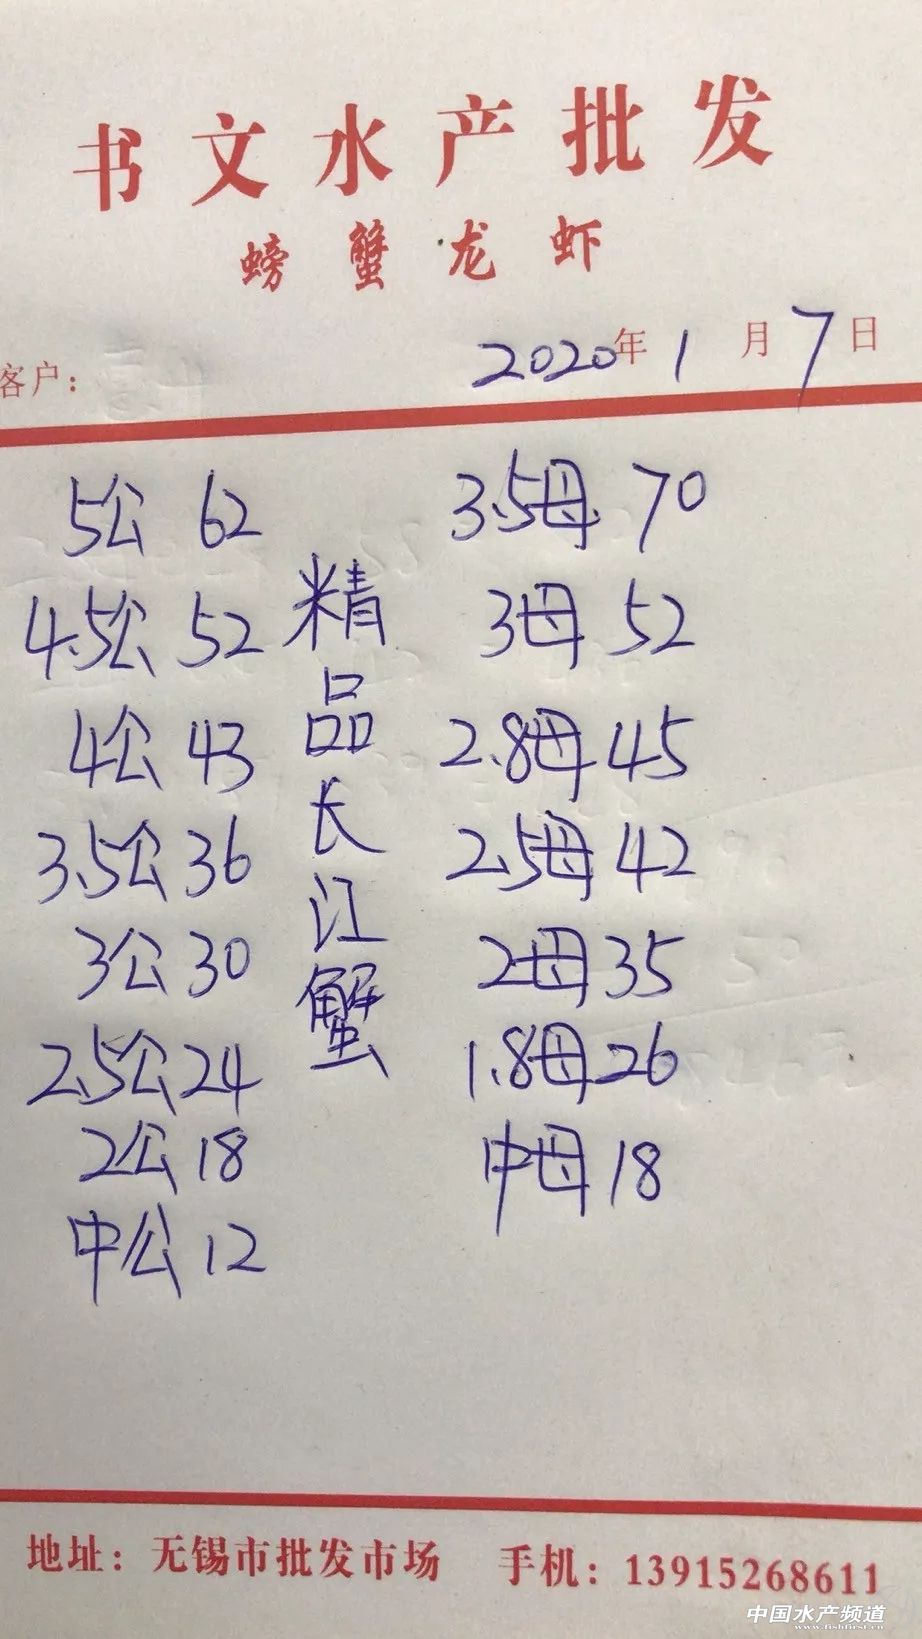 书文水产批发
螃蟹龙虾
客户: 2020年1月7日
5公 62
4.5公 52
4公 43
3.5公 36
3公 30
2.5公 24
2公 18
中公 12
精品长江蟹
3.5母 70
3母 52
2.8母 45
2.5母 42
2母 35
1.8母 26
中母 18
地址: 无锡市批发市场 手机: 13915268611
中国水产频道
www.fishfirst.cn